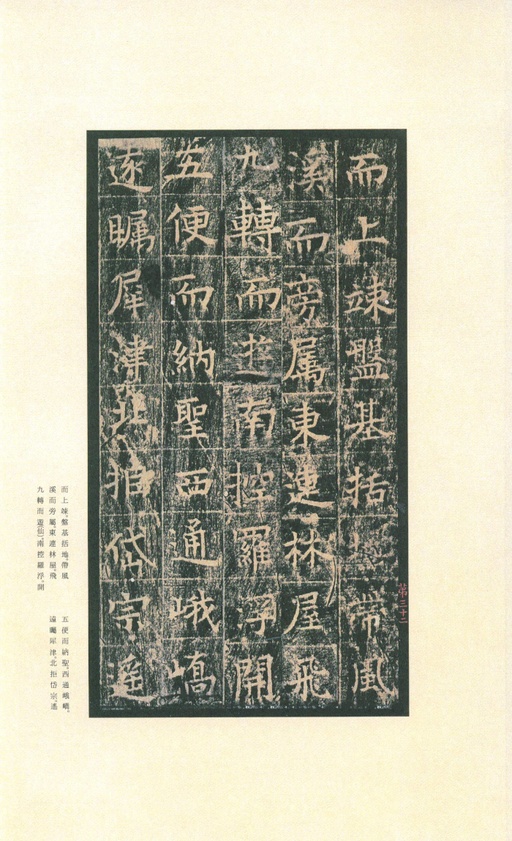 而上竦盤基括地帶風
溪而旁属東連林屋飛
九轉而遊南控羅浮開
五便而納聖西通峨嶠
遂矚犀津北拒岱宗遥
第三十二
而上竦,盤基括地,帶風
溪而旁屬,東連林屋,飛
九轉而遊仙,南控羅浮,開
五便而納聖,西通峨嶠,
遠矚犀津,北拒岱宗,遙